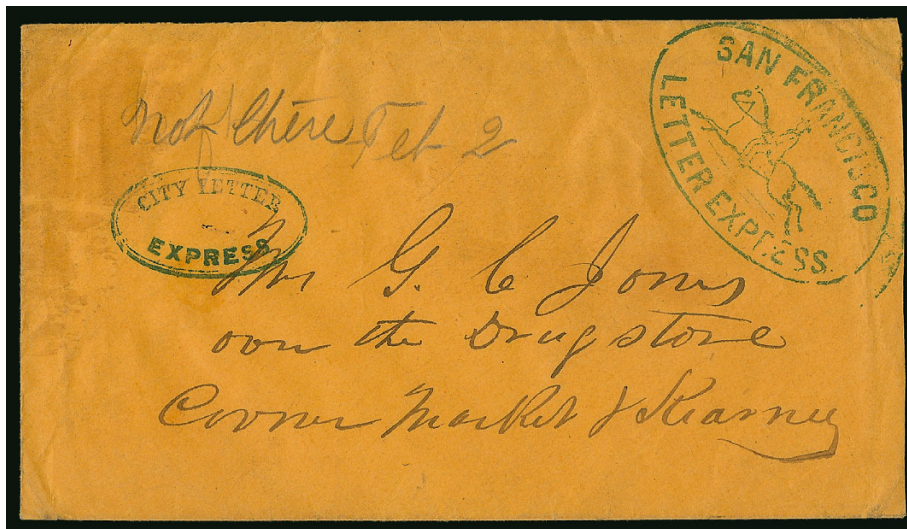 SAN FRANCISCO
LETTER EXPRESS.
Not there Feb 2
CITY LETTER
EXPRESS
Mr G. C Jones
over the Drugstore
Corner Market & Kearney